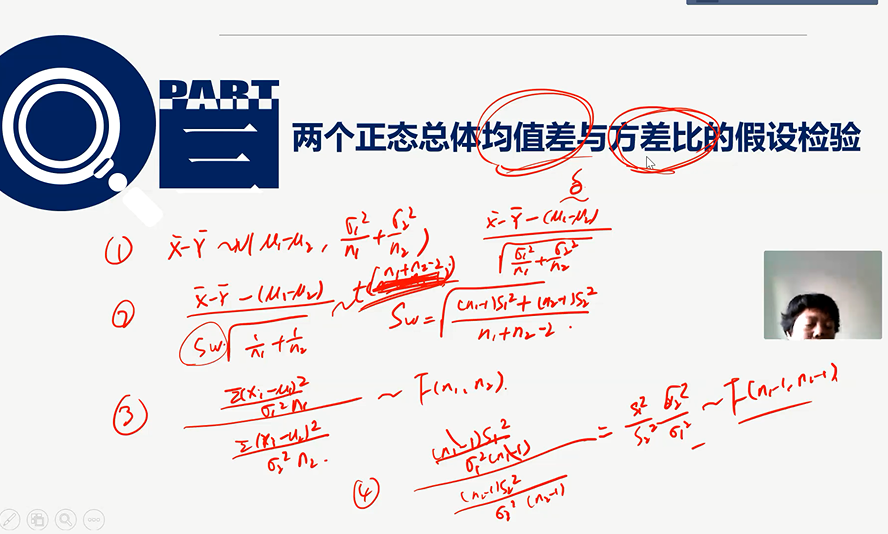 PART
三
两个正态总体均值差与方差比的假设检验
① X̄-Ȳ ~ N(μ₁-μ₂, σ₁²/n₁ + σ₂²/n₂)
X̄-Ȳ-(μ₁-μ₂) / √(σ₁²/n₁ + σ₂²/n₂)
② X̄-Ȳ-(μ₁-μ₂) / Sw·√(1/n₁ + 1/n₂) ~ t(n₁+n₂-2)
Sw = √((n₁-1)S₁² + (n₂-1)S₂² / n₁+n₂-2)
③ Σ(Xi-μ₁)²/σ₁²n₁ / Σ(Yi-μ₂)²/σ₂²n₂ ~ F(n₁, n₂)
④ (n₁-1)S₁²/σ₁²(n₁-1) / (n₂-1)S₂²/σ₂²(n₂-1) = S₁²/S₂² σ₂²/σ₁² ~ F(n₁-1, n₂-1)